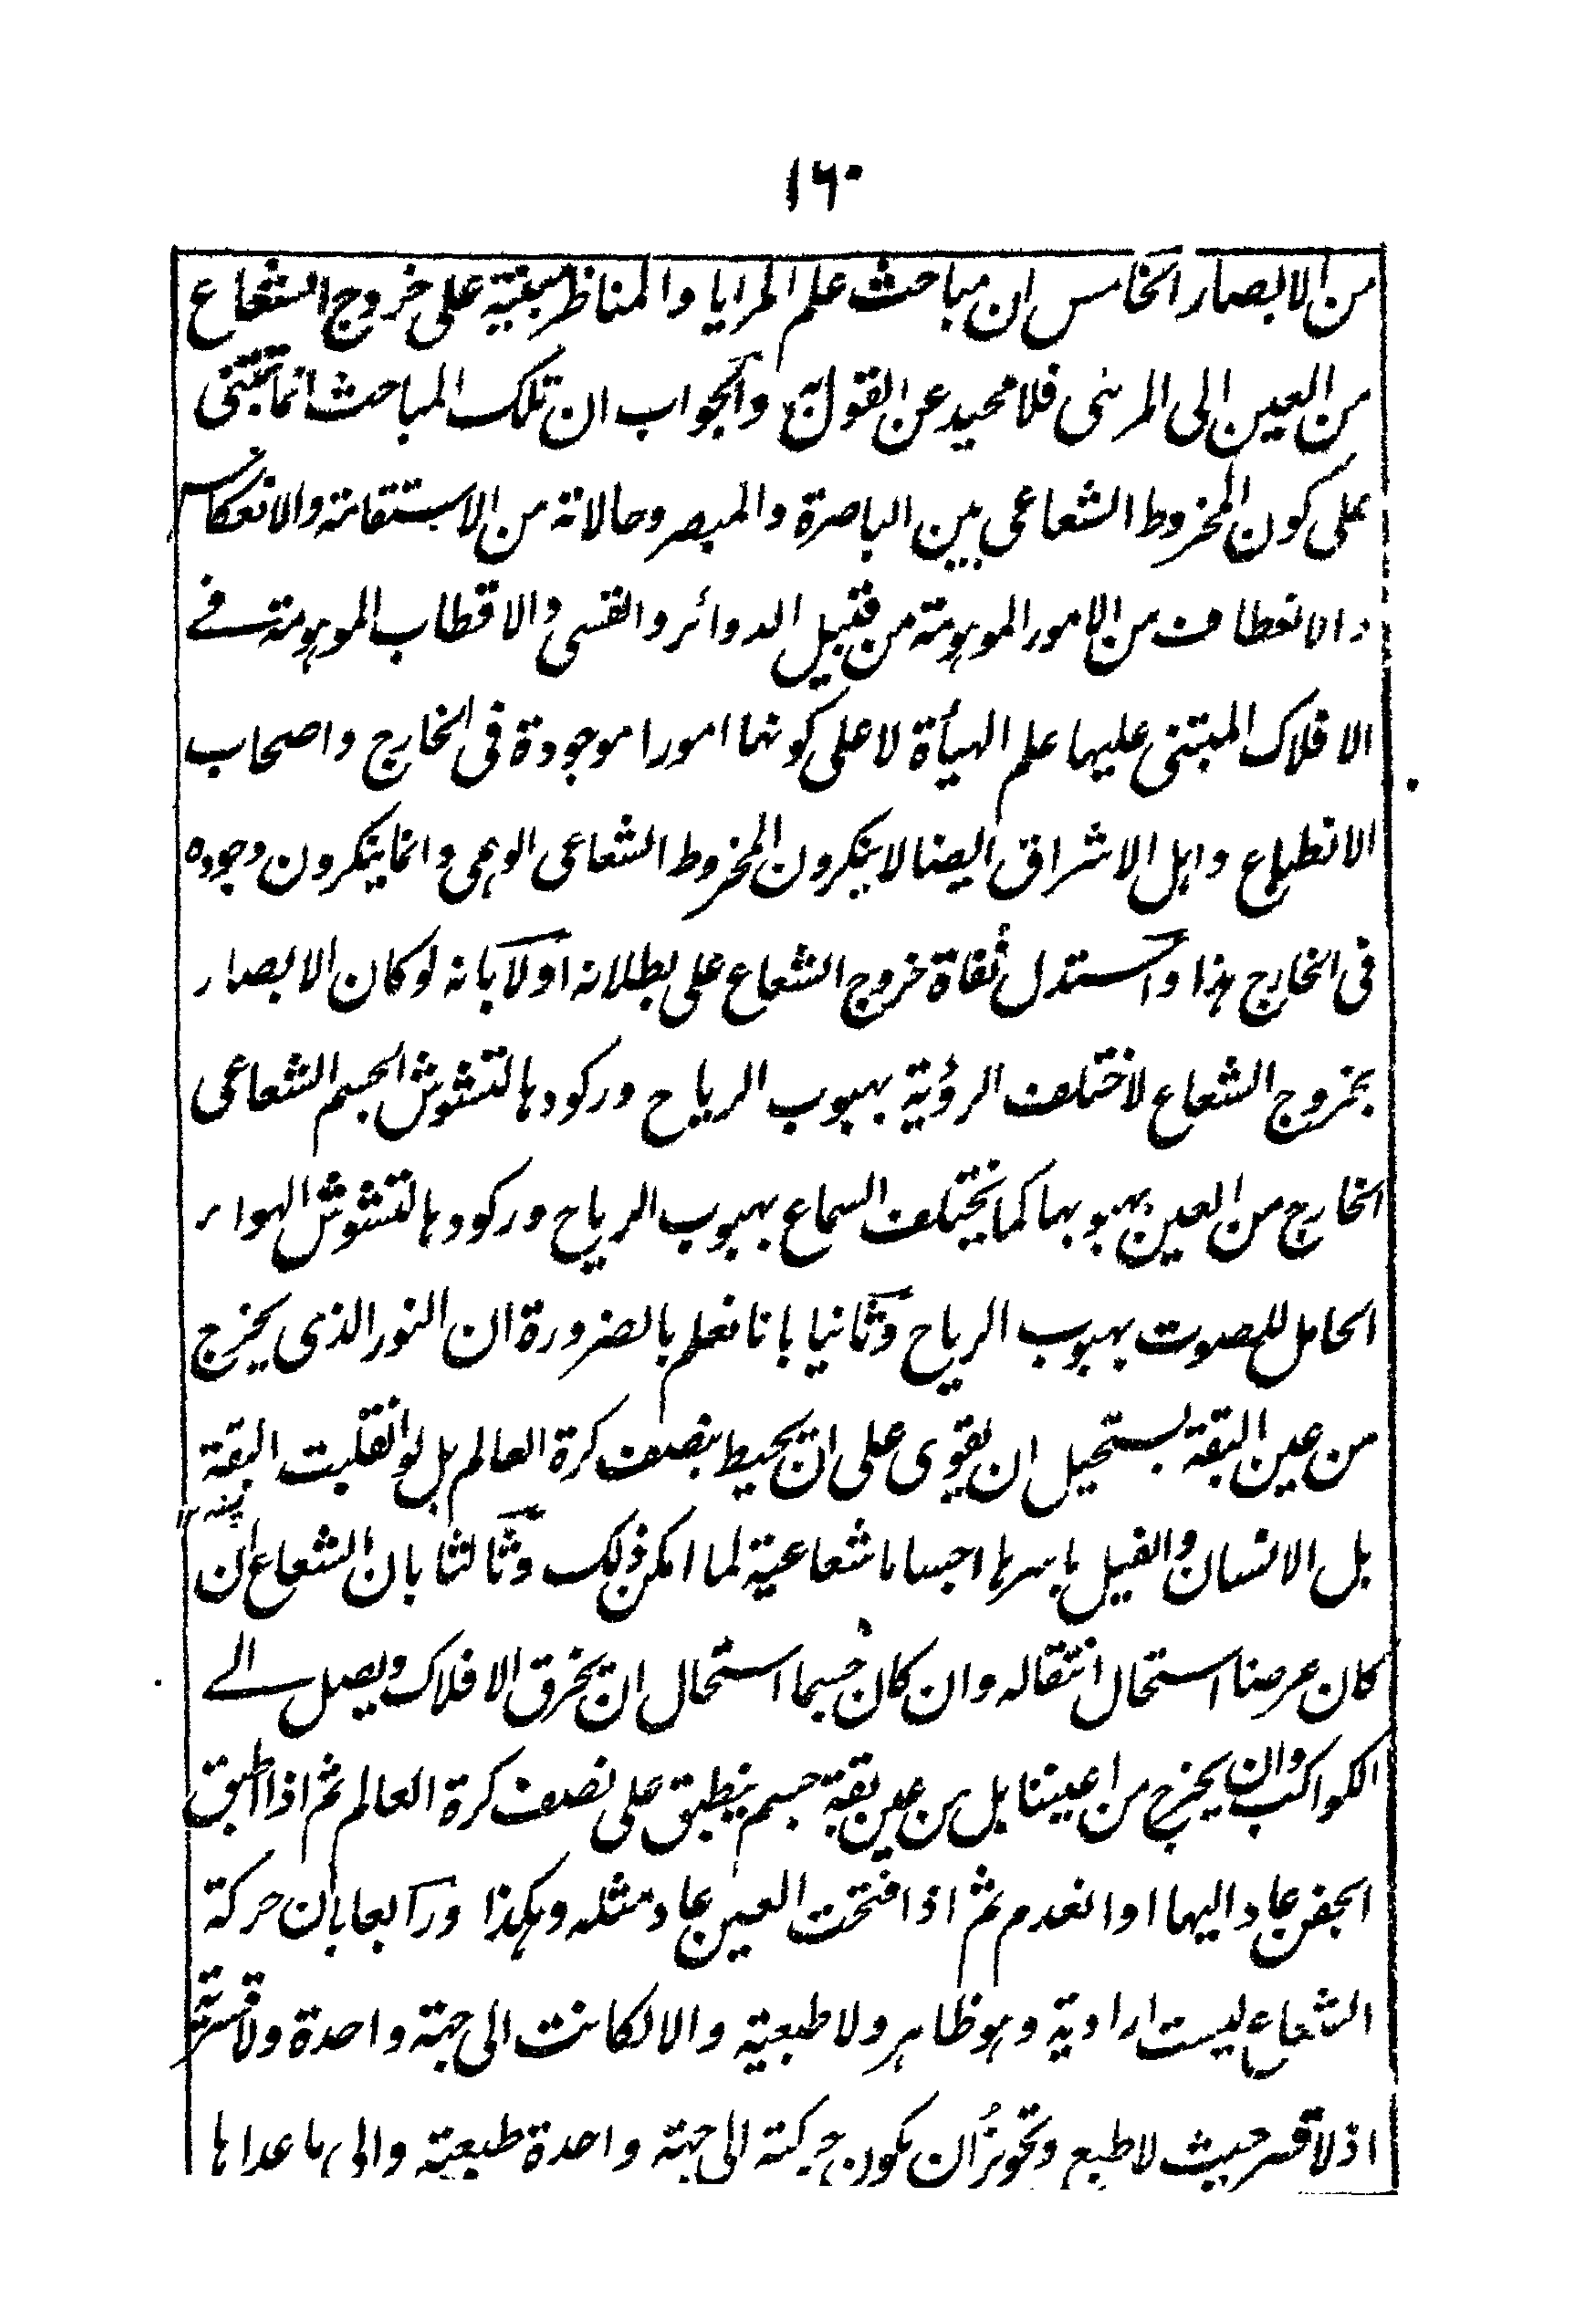 ١٦٠
من الابصار الخامس ان مباحث علم المرايا والمناظر مبنية على خروج الشعاع
من العين الى المرئى فلا محيد عن القول به والجواب ان تلك المباحث انما تبتنى
على كون المخروط الشعاعى بين الباصرة والمبصر وحالاته من الاستقامة والانعكاس
والانعطاف من الامور الموهومة من قبيل الدوائر والقسى والاقطاب الموهومة فے
الافلاك المبتنى عليها علم الهيأة لا على كونها امورا موجودة فى الخارج واصحاب
الانطباع واهل الاشراق ايضا لا ينكرون المخروط الشعاعى الوهمى وانما ينكرون وجوده
فى الخارج هذا واستدل نفاة خروج الشعاع على بطلانه اولا بانه لو كان الابصار
بخروج الشعاع لاختلف الرؤية بهبوب الرياح وركودها لتشوش الجسم الشعاعى
الخارج من العين بهبوبها كما يختلف السماع بهبوب الرياح وركودها لتشوش الهواء
الحامل للصوت بهبوب الرياح وثانيا بانا نعلم بالضرورة ان النور الذى يخرج
من عين البقة يستحيل ان يقوى على ان يحيط بنصف كرة العالم بل لو انقلبت البقة
بل الانسان والفيل باسرها اجساما شعاعية لما امكن ذلك وثالثا بان الشعاع ان
كان عرضا استحال انتقاله وان كان جسما استحال ان يخرق الافلاك ويصل الے
الكواكب وان يخرج من اعيننا بل من عين بقة جسم ينطبق على نصف كرة العالم ثم اذا اطبق
الجفن عاد اليها او انعدم ثم اذا فتحت العين عاد مثله وهكذا ورابعا بان حركة
الشعاع ليست ارادية وهو ظاهر ولا طبعية والا لكانت الى جهة واحدة ولا قسرية
اذ لا قسر حيث لا طبع وتجويز ان يكون حركته الى جهة واحدة طبعية والى ما عداها